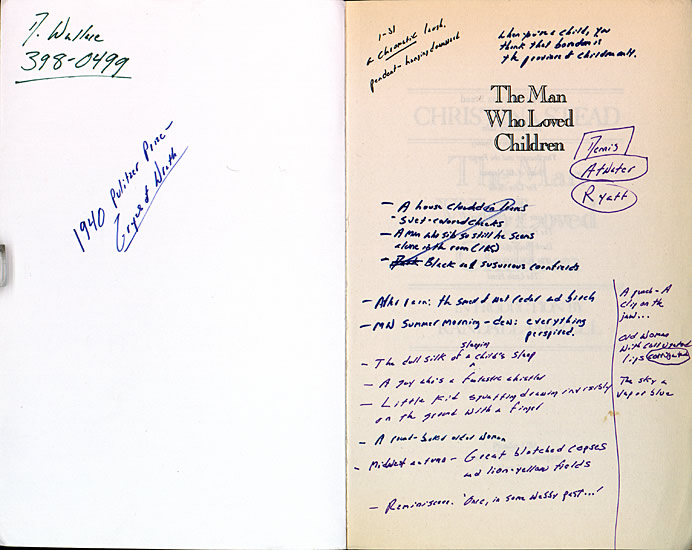 D. Wallace
398-0499
1940 Pulitzer Prize -
Grapes of Wrath
1-31
a chromatic laugh.
pendent - hanging downward
when you're a child, you
think that boredom is
the province of children only.
The Man
Who Loved
Children
Dennis
Atwater
Ryatt
- A house clouded
- Suet-colored cheeks
- A man who sits so still he seems
alone in the room (IRS)
- Black susurrous cornfields
- After rain: the smell of wet cedar and birch
- MW Summer morning - dew: everything
perspired.
sleeping
- The dull silk of a child's sleep
- A guy who's a fantastic whistler
- Little kid squatting drawing invisibly
on the ground with a finger
- A round-backed older woman
- Midwest autumn - Great blotched copses
and lion-yellow fields
- Reminiscence. 'Once, in some webby past...'
A punch - A
clip on the
jaw...
Old woman
with corrugated
lips corrugated
The sky a
vapor blue